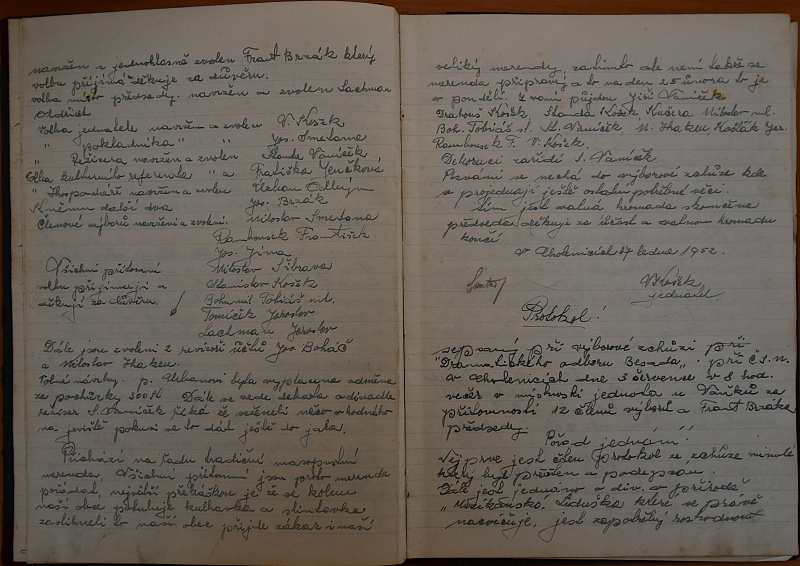 navržen a jednohlasně zvolen Frant Brzák který
volbu přijímá děkuje za důvěru.
volba místo předsedy. navržen a zvolen Lachman
Oldřich
Volba jednatele navržen a zvolen V. Kosek
" pokladníka " " Jos. Smetana
" Režisera navržen a zvolen Standa Vaníček
Volba kulturního referenta " a Františka Jenčíková
" Hospodářů navržen a zvolen
K němu další dva Jos. Brzák
Členové výborů navrženi a zvoleni. Miloslav Smetana
Rambousek František
Jos. Jína
Všichni přítomní Miloslav Šibrava
volbu přijímají a Stanislav Kosek
děkují za důvěru. Bohumil Tobiáš ml.
Tomíček Jaroslav
Lachman Jaroslav
Dále jsou zvoleni 2 revizoři účtů Jos Boháč
a Miloslav Haken.
Volné návrhy. p. Urbanovi byla vyplacena odměna
za pochůzky 300 Kč. Dále se vede debata o divadle
režiser S. Vaníček říká že sežene-li něco vhodného
na jeviště pokusí se to dát ještě to jara.
Přichází na řadu tradiční masopustní
merenda. Všichni přítomní jsou proto merendu
pořádat, největší překážkou je že se kolem
naší obce pohybuje kulhavka a slintavka
zasáhne-li to naší obec přijde zákaz i naší
veliký merendy, zatímto ale není takže se
merenda připravuj a to na den 25 února to je
v pondělí. Z vaní půjdou Jiří Vaníček
Drahouš Kosek, Standa Kosek, Kučera Miloslav ml.
Boh. Tobiáš st. St. Vaníček, M. Haken, Košťák Jar.
Rambousek F. V. Kosek.
Dekoraci zařídí S. Vaníček
Pozvání se nechá do výborové schůze kde
se projednají ještě ostatní potřebné věci.
Tím jest valná hromada skončena
předseda děkuje za účast a valnou hromadu
končí
v Cholenicích 27 ledna 1952.
V Kosek
jednatel.
Protokol!
sepsaný při výborové schůzi při
Dramatického odboru Beseda" při Č.S.M.
v Cholenicích dne 3 července v 8 hod.
večer v místnosti jednota u Vaníků za
přítomnosti 12 členů výborů a Frant Brzáka
předsedy.
Pořad jednání!
Nejprve jest čten protokol ze schůze minulé
který byl přečten a podepsán.
Dále jest jednáno o div. v přírodě
"Muzikantská Liduška které se právě
nacvičuje, jest zapotřebí rozhodnout